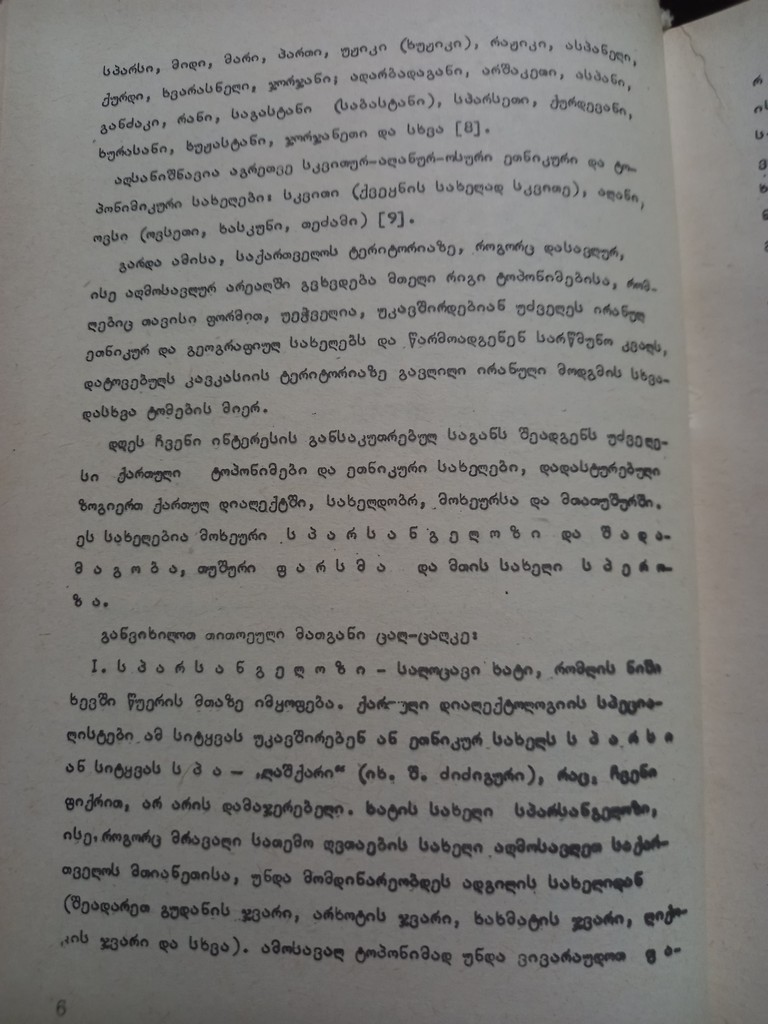 სპარსი, მიდი, მარი, პართი, უჟიკი (ხუჟიკი), რაჟიკი, ასპანელი,
ქურდი, ხვარასნელი, ჯორჯანი; ადარბადაგანი, არშაკეთი, ასპანი,
განძაკი, რანი, საგასტანი (საბასტანი), სპარსეთი, ქურდევანი,
ხურასანი, ხუჟასტანი, ჯორჯანეთი და სხვა [8].
აღსანიშნავია აგრეთვე სკვითურ-ალანურ-ოსური ეთნიკური და ტო-
პონიმიკური სახელები: სკვითი (ქვეყნის სახელად სკვითე), ალანი,
ოვსი (ოვსეთი, ხასკუნი, თეძამი) [9].
გარდა ამისა, საქართველოს ტერიტორიაზე, როგორც დასავლურ,
ისე აღმოსავლურ არეალში გვხვდება მთელი რიგი ტოპონიმებისა, რომ-
ლებიც თავისი ფორმით, უეჭველია, უკავშირდებიან უძველეს ირანულ
ეთნიკურ და გეოგრაფიულ სახელებს და წარმოადგენენ სარწმუნო კვალს,
დატოვებულს კავკასიის ტერიტორიაზე გავლილი ირანული მოდგმის სხვა-
დასხვა ტომების მიერ.
დღეს ჩვენი ინტერესის განსაკუთრებულ საგანს შეადგენს უძველე-
სი ქართული ტოპონიმები და ეთნიკური სახელები, დადასტურებული
ზოგიერთ ქართულ დიალექტში, სახელდობრ, მოხეურსა და მთათუშურში.
ეს სახელებია მოხეური ს პ ა რ ს ა ნ გ ე ლ ო ზ ი და შ ა დ ა-
მ ა გ ო ბ ა, თუშური ფ ა რ ს მ ა და მთის სახელი ს პ ე რ ო-
ზ ა.
განვიხილოთ თითოეული მათგანი ცალ-ცალკე:
I. ს პ ა რ ს ა ნ გ ე ლ ო ზ ი – სალოცავი ხატი, რომლის ნიში
ხევში წუერის მთაზე იმყოფება. ქართული დიალექტოლოგიის სპეცია-
ლისტები ამ სიტყვას უკავშირებენ ან ეთნიკურ სახელს ს პ ა რ ს ი
ან სიტყვას ს პ ა – „ლაშქარი“ (იხ. შ. ძიძიგური), რაც, ჩვენი
ფიქრით, არ არის დამაჯერებელი. ხატის სახელი სპარსანგელოზი,
ისე, როგორც მრავალი სათემო ღვთაების სახელი აღმოსავლეთ საქარ-
თველოს მთიანეთისა, უნდა მომდინარეობდეს ადგილის სახელიდან
(შეადარეთ გუდანის ჯვარი, არხოტის ჯვარი, ხახმატის ჯვარი, ლიქო-
კის ჯვარი და სხვა). ამოსავალ ტოპონიმად უნდა ვივარაუდოთ ფ ა-
6